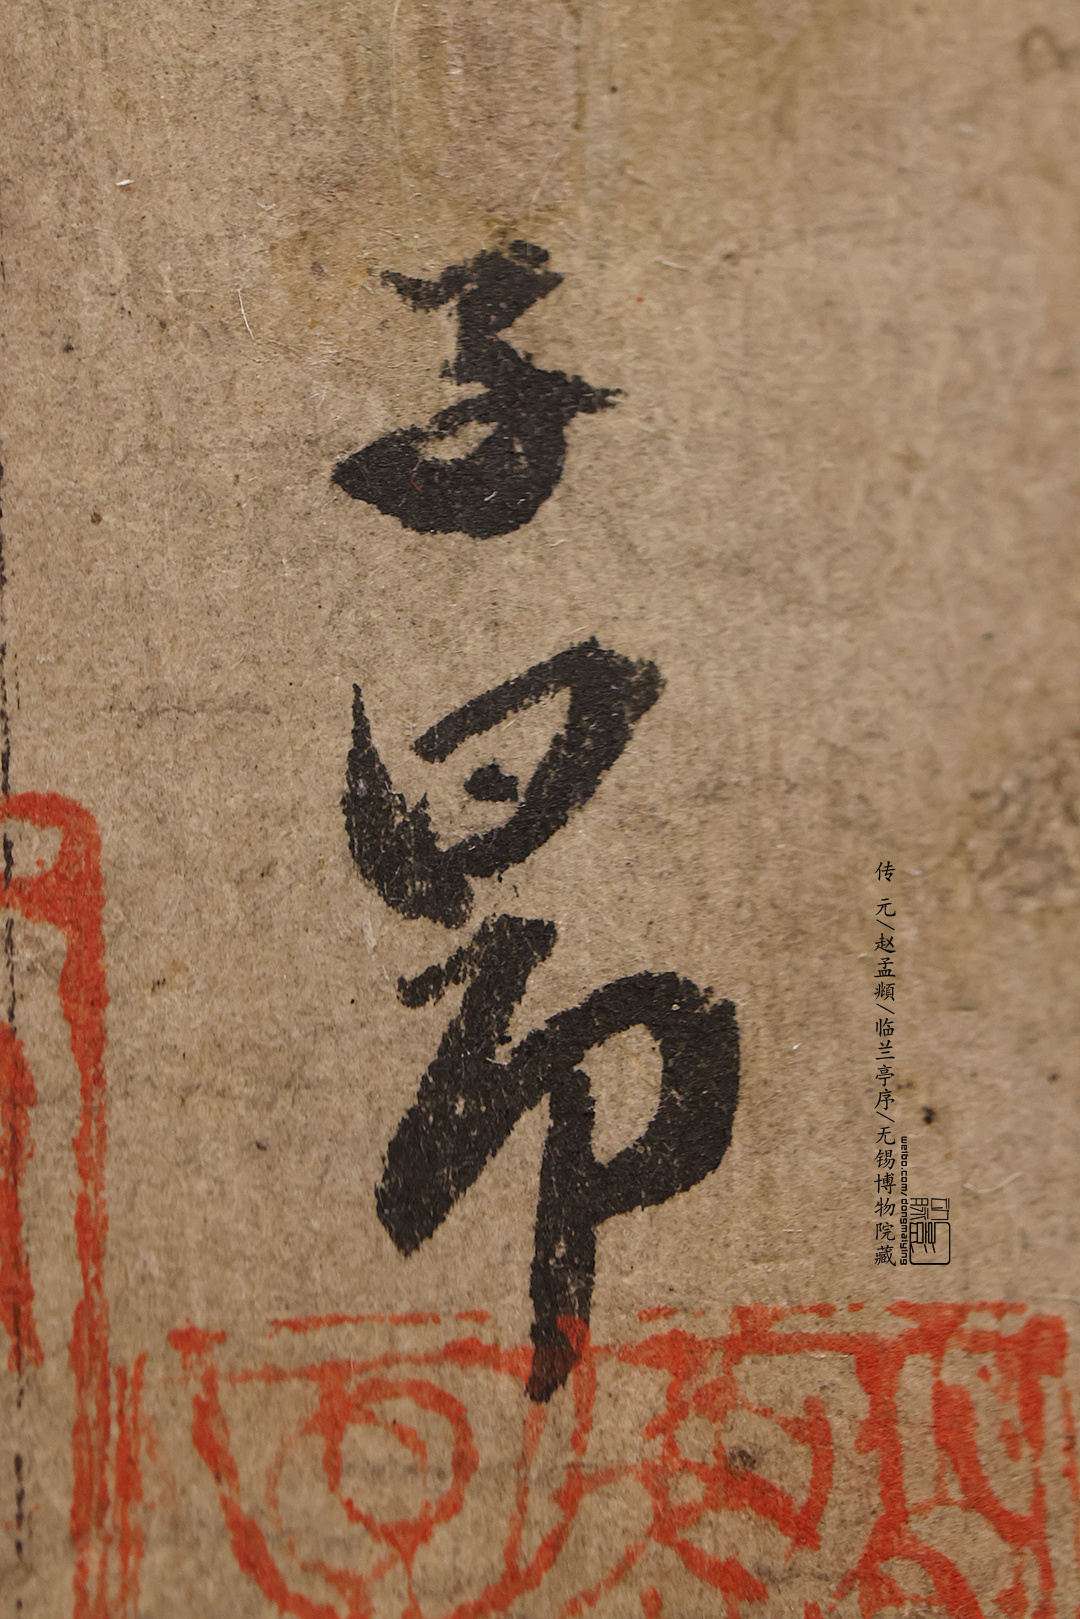 子昂
传 元/赵孟頫/临兰亭序/无锡博物院藏
weibo.com/dongmaiying